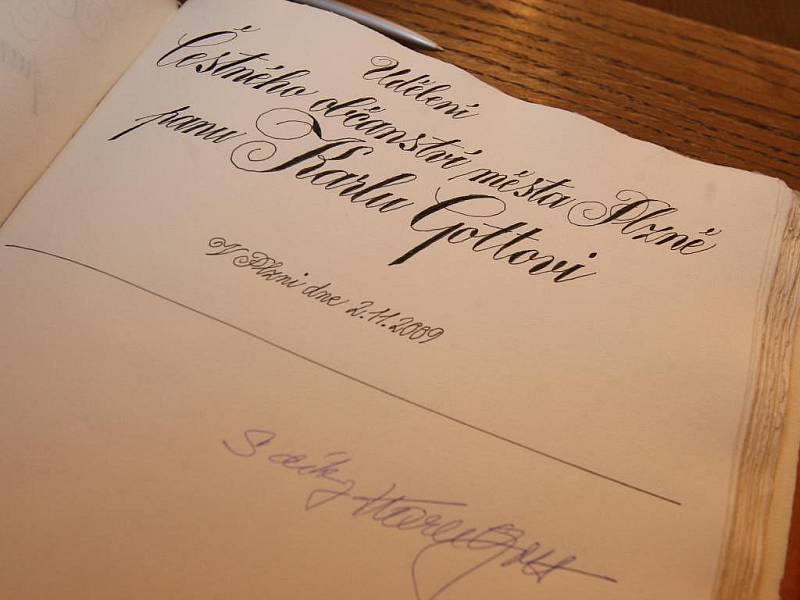 Udělení
Čestného občanství města Plzně
panu Karlu Gottovi
V Plzni dne 2.11.2009
S díky Karel Gott